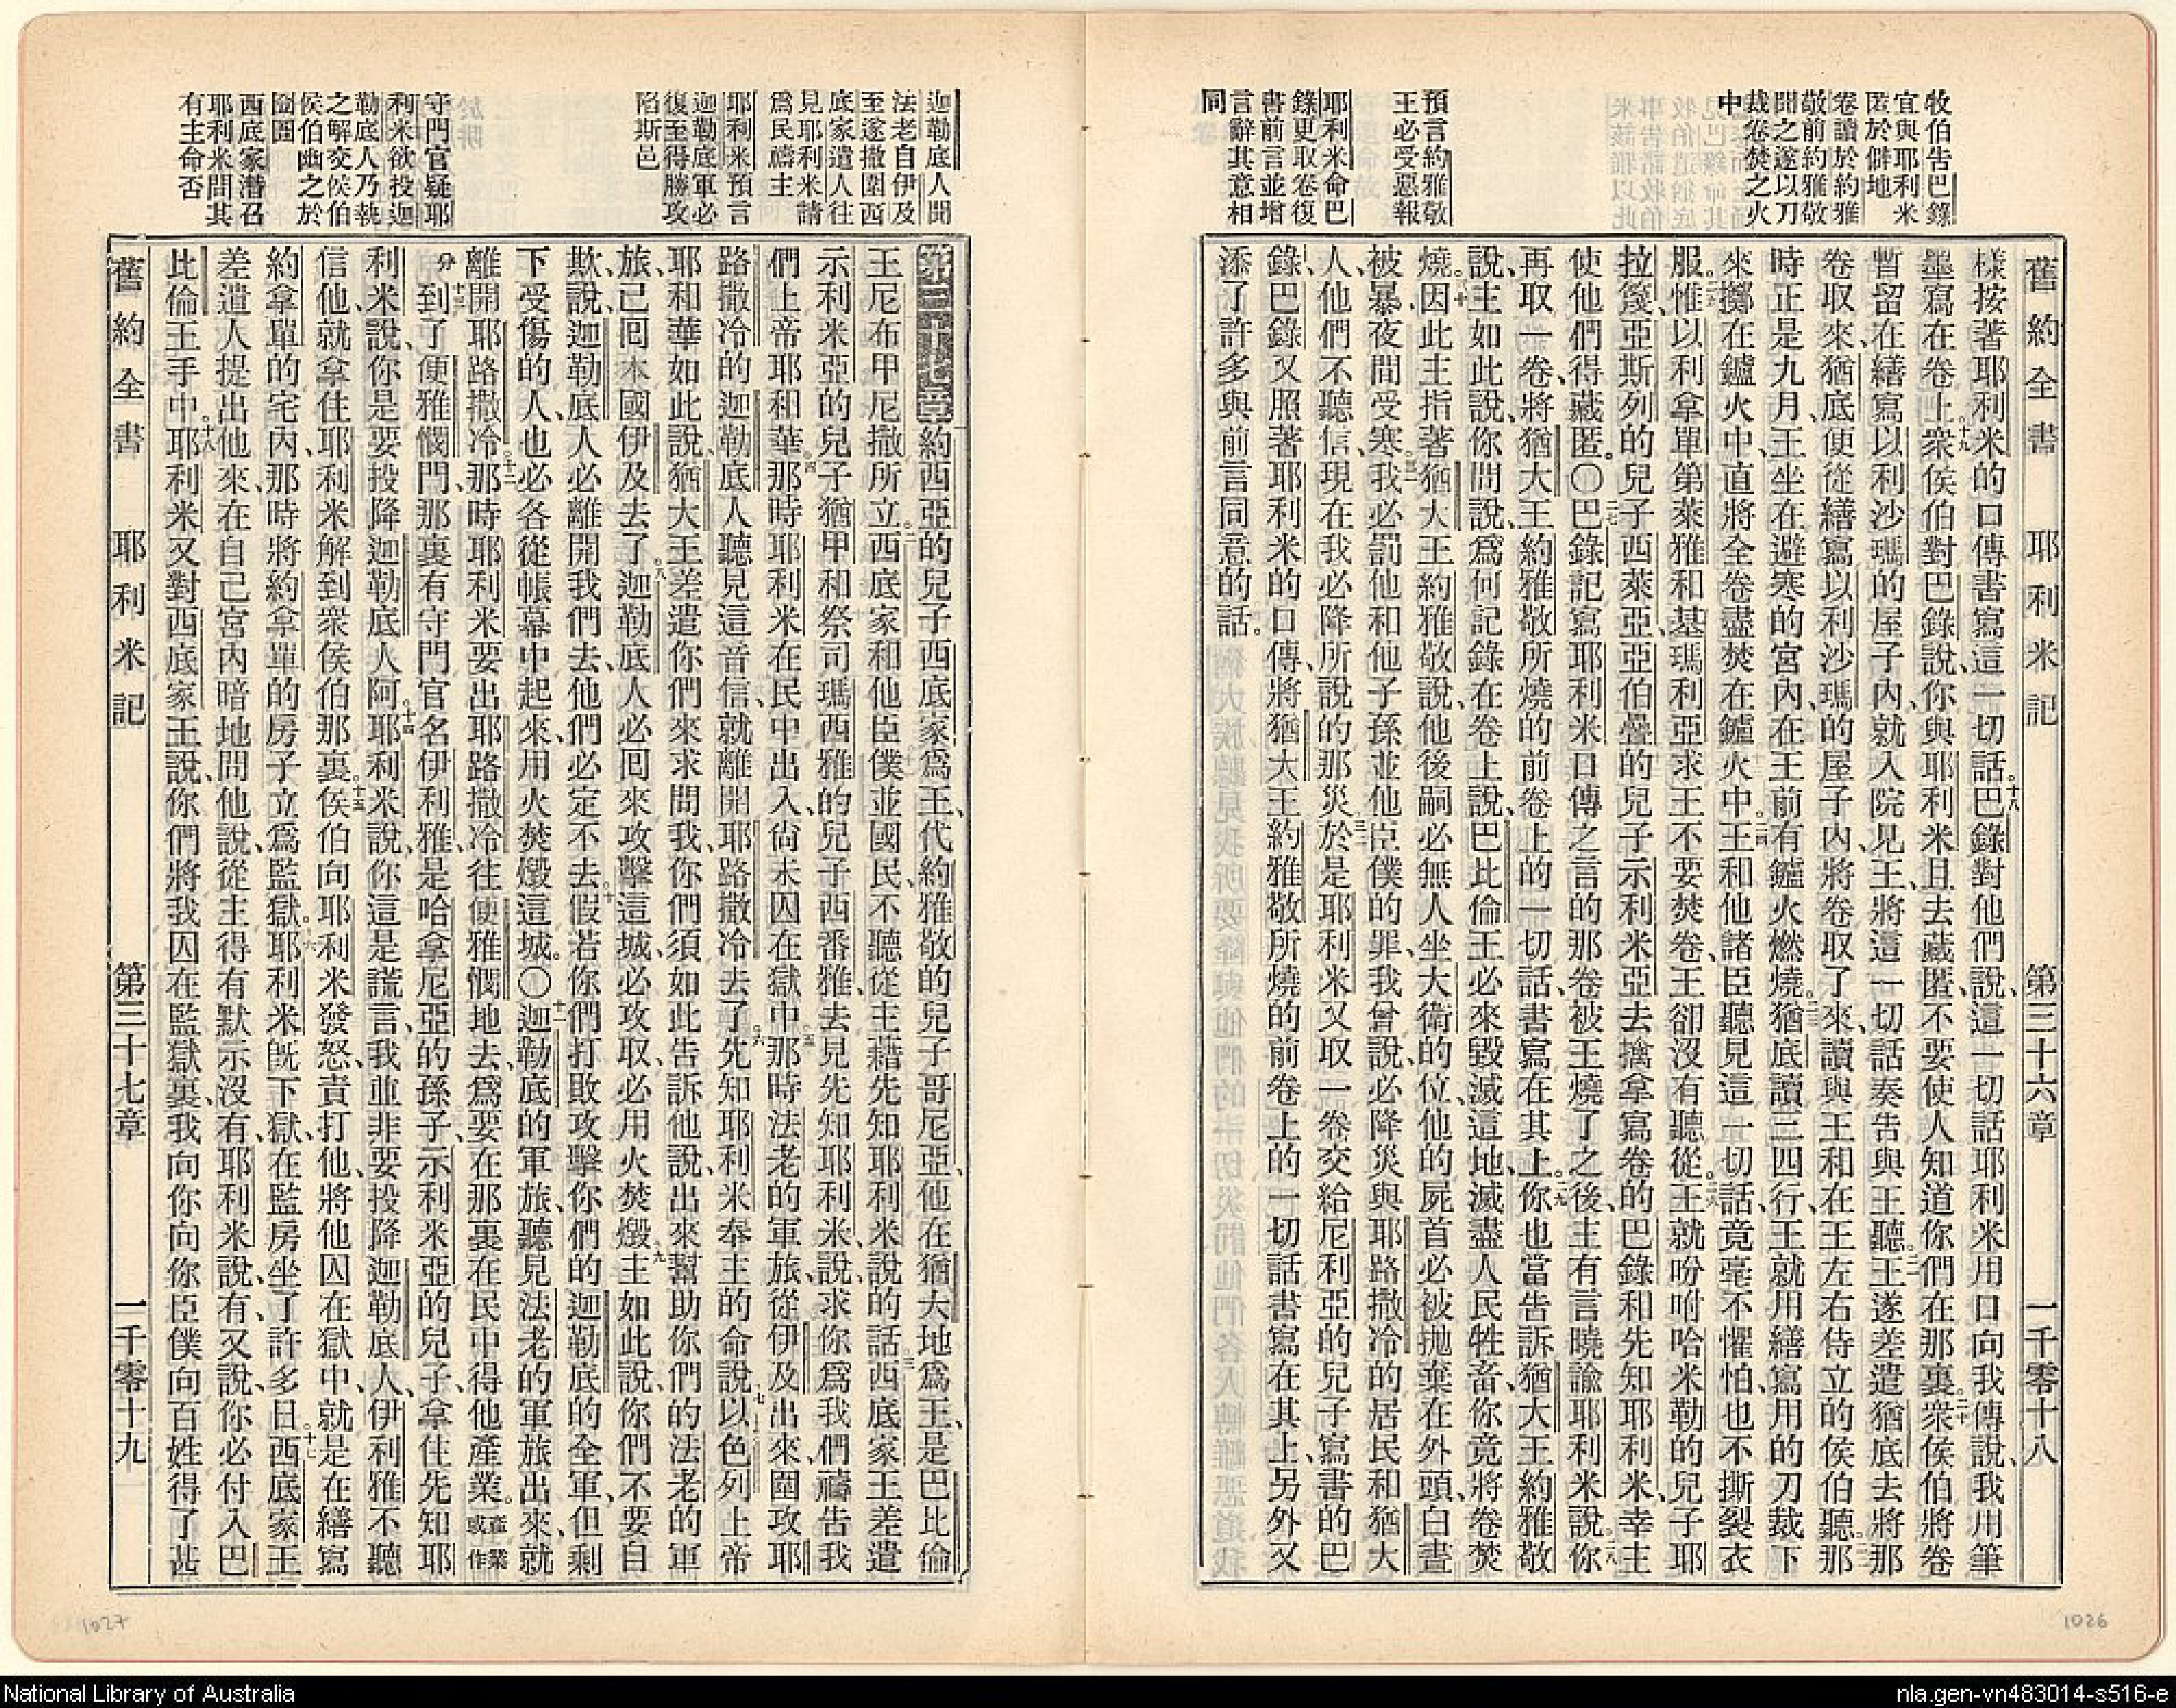 牧伯告巴錄
宜與耶利米
匿於僻地
卷讀於約雅
敬前約雅敬
聞之遂以刀
裁卷焚之火
中
預言約雅敬
王必受惡報
耶利米命巴
錄更取卷復
書前言並增
言辭其意相
同
舊約全書 耶利米記 第三十六章 一千零十八
樣按著耶利米的口傳書寫這一切話。十八巴錄對他們說、這一切話耶利米用口向我傳說、我用筆
墨寫在卷上。十九衆侯伯對巴錄說、你與耶利米且去藏匿、不要使人知道你們在那裏。二十衆侯伯將卷
暫留在繕寫以利沙瑪的屋子內、就入院見王、將這一切話奏告與王聽。二一王遂差遣猶底去將那
卷取來、猶底便從繕寫以利沙瑪的屋子內、將卷取了來、讀與王和在王左右侍立的侯伯聽。二二那
時正是九月、王坐在避寒的宮內、在王前有鑪火燃燒。二三猶底讀三四行、王就用繕寫用的刀裁下
來、擲在鑪火中、直將全卷盡焚在鑪火中。二四王和他諸臣聽見這一切話、竟毫不懼怕、也不撕裂衣
服。二五惟以利拿單第萊雅和基瑪利亞求王不要焚卷、王卻沒有聽從。二六王就吩咐哈米勒的兒子耶
拉篾、亞斯列的兒子西萊亞、亞伯疊的兒子示利米亞去擒拿寫卷的巴錄和先知耶利米、幸主
使他們得藏匿。〇二七巴錄記寫耶利米口傳之言的那卷被王燒了之後、主有言曉諭耶利米說、二八你
再取一卷、將猶大王約雅敬所燒的前卷上的一切話、書寫在其上。二九你也當告訴猶大王約雅敬
說、主如此說、你問說、爲何記錄在卷上說、巴比倫王必來毀滅這地、滅盡人民牲畜、你竟將卷焚
燒。三十因此主指著猶大王約雅敬說、他後嗣必無人坐大衛的位、他的屍首必被拋棄在外頭、白晝
被暴、夜間受寒。三一我必罰他和他子孫並他臣僕的罪、我曾說、必降災與耶路撒冷的居民和猶大
人、他們不聽信、現在我必降所說的那災。三二於是耶利米又取一卷交給尼利亞的兒子寫書的巴
錄、巴錄又照著耶利米的口傳、將猶大王約雅敬所燒的前卷上的一切話書寫在其上、另外又
添了許多與前言同意的話。
迦勒底人聞
法老自伊及
至遂撤圍西
底家遣人往
見耶利米請
爲民禱主
耶利米預言
迦勒底軍必
復至得勝攻
陷斯邑
守門官疑耶
利米欲投迦
勒底人乃執
之解交侯伯
侯伯幽之於
囹圄
西底家潛召
耶利米問其
有主命否
第三十七章約西亞的兒子西底家爲王、代約雅敬的兒子哥尼亞、他在猶大地爲王、是巴比倫
王尼布甲尼撒所立。二西底家和他臣僕並國民、不聽從主藉先知耶利米說的話。三西底家王差遣
示利米亞的兒子猶甲和祭司瑪西雅的兒子西番雅、去見先知耶利米、說、求你爲我們禱告我
們上帝耶和華。四那時耶利米在民中出入、尙未囚在獄中。五那時法老的軍旅、從伊及出來、圍攻耶
路撒冷的迦勒底人聽見這音信、就離開耶路撒冷去了。六先知耶利米奉主的命說、七以色列上帝
耶和華如此說、猶大王差遣你們來求問我、你們須如此告訴他說、出來幫助你們的法老的軍
旅、已囘本國伊及去了。八迦勒底人必囘來攻擊這城、必攻取、必用火焚燬。九主如此說、你們不要自
欺、說、迦勒底人必離開我們去、他們必定不去。十假若你們打敗攻擊你們的迦勒底的全軍、但剩
下受傷的人、也必各從帳幕中起來、用火焚燬這城。〇十一迦勒底的軍旅、聽見法老的軍旅出來、就
離開耶路撒冷。十二那時耶利米要出耶路撒冷、往便雅憫地去、爲要在那裏在民中得他產業。產業或作
分十三到了便雅憫門、那裏有守門官名伊利雅、是哈拿尼亞的孫子、示利米亞的兒子、拿住先知耶
利米說、你是要投降迦勒底人阿。十四耶利米說、你這是謊言、我並非要投降迦勒底人、伊利雅不聽
信他、就拿住耶利米解到衆侯伯那裏。十五侯伯向耶利米發怒、責打他、將他囚在獄中、就是在繕寫
約拿單的宅內、那時將約拿單的房子立爲監獄。十六耶利米旣下獄、在監房坐了許多日。十七西底家王
差遣人提出他來、在自己宮內暗地問他說、從主得有默示沒有、耶利米說、有、又說、你必付入巴
比倫王手中。十八耶利米又對西底家王說、你們將我囚在監獄裏、我向你向你臣僕向百姓得了甚
舊約全書 耶利米記 第三十七章 一千零十九
1027
1026
National Library of Australia
nla.gen-vn483014-s516-e